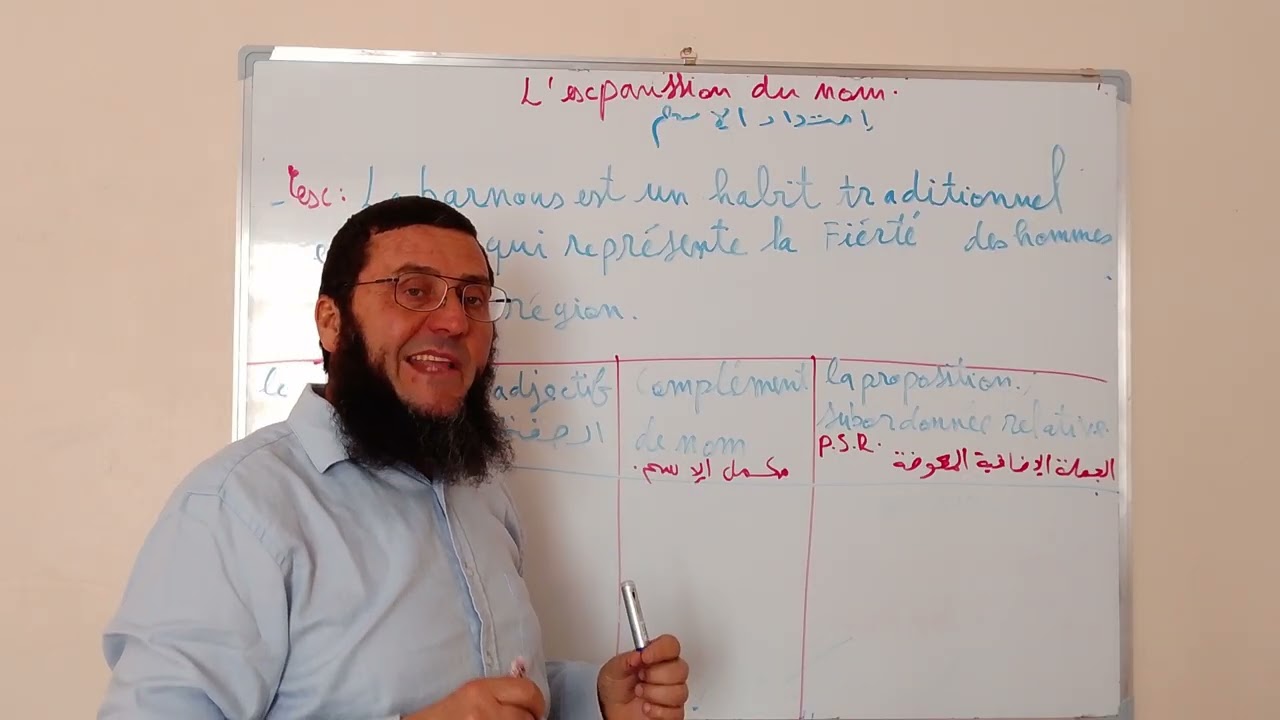 L'expanssion du nom.
إمتداد الإسم
- Tex: Le barnous est un habit traditionnel
qui représente la Fiérté des hommes
région.
le adjectif Complément la proposition
الصفة de nom subordonnée relative
مكمل الإسم. P.S.R. الجملة الإضافية الموصوفة